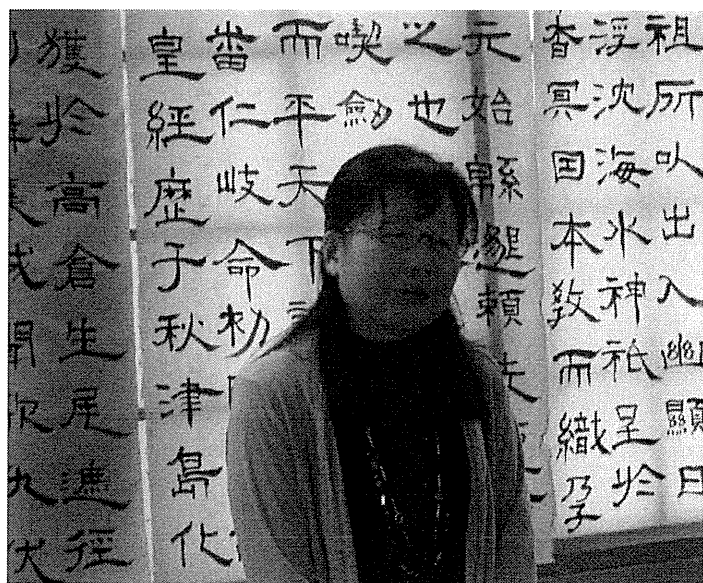 祖所以出入幽顯日
浮沈海水神祇呈於
杳冥因本敎而織孕
元始緜邈頼先
之也
喫劔
而平天下
番仁岐命初
皇經歴于秋津島化
獲於高倉生尾遮徑